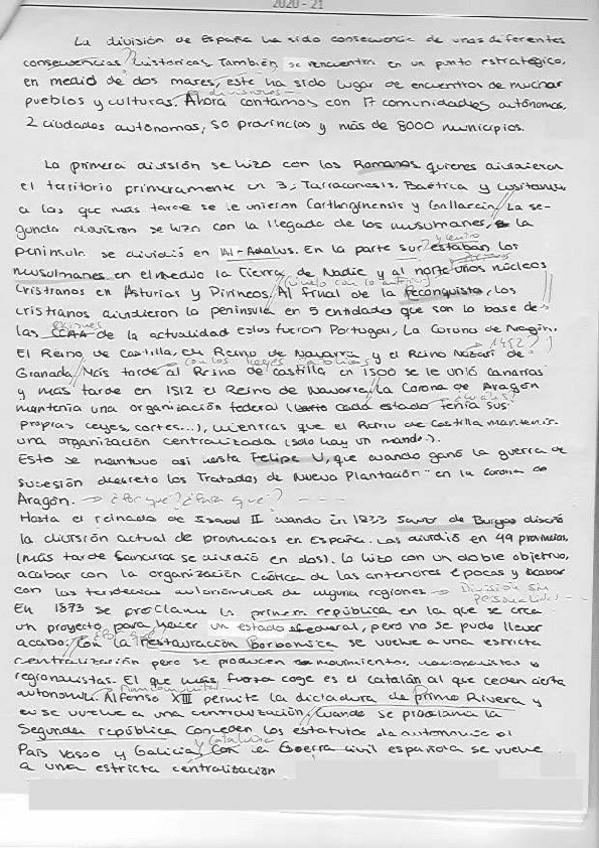 2020-21
La división de España ha sido consecuencia de unas diferentes
consecuencias históricas. También se encuentra en un punto estratégico,
en medio de dos mares, este ha sido lugar de encuentros de muchos
pueblos y culturas. Ahora contamos con 17 comunidades autónomas,
2 ciudades autónomas, 50 provincias y más de 8000 municipios.
La primera división se hizo con los Romanos quienes dividieron
el territorio primeramente en 3; Tarraconesis, Baética y Lusitania
a las que más tarde se le unieron Carthaginensis y Gallaecia. La se-
gunda división se hizo con la llegada de los musulmanes, la
y centro
península se dividió en Al-Adalus. En la parte sur estaban los
musulmanes en el medio la Tierra de Nadie y al norte unos núcleos
cristianos en Asturias y Pirineos. Al final de la reconquista, los
cristianos dividieron la península en 5 entidades que son la base de
las CCAA de la actualidad estos fueron Portugal, La Corona de Aragón,
El Reino de Castilla, el Reino de Navarra y el Reino Nazarí de
1492?
Granada. Más tarde al Reino de castilla en 1500 se le unió Canarias
con los Reyes Católicos
y más tarde en 1512 el Reino de Navarra. La Corona de Aragón
mantenía una organización federal (cada estado tenía sus
propias leyes, cortes...), mientras que el Reino de Castilla mantenía
una organización centralizada (solo hay un mando).
Esto se mantuvo así hasta Felipe V, que cuando ganó la guerra de
sucesión decreto los Tratados de Nueva Plantación en la corona de
Aragón. → ¿Por qué? ¿Para qué? - - - -
Hasta el reinado de Isabel II cuando en 1833 Javier de Burgos diseñó
la división actual de provincias en España. Las dividió en 49 provincias,
(más tarde Canarias se dividió en dos). Lo hizo con un doble objetivo,
acabar con la organización Caótica de las anteriores épocas y acabar
con las tendencias autonómicas de alguna regiones
División en
En 1873 se proclama la primera república en la que se crea
un proyecto para hacer un estado federal, pero no se pudo llevar
acabo. Con la restauración Borbónica se vuelve a una estricta
¿Por qué?
centralización pero se producen movimientos nacionalistas o
regionalistas. El que más fuerza coge es el catalán al que ceden cierta
Mancomunitat
autonomía. Alfonso XIII permite la dictadura de Primo Rivera y
en se vuelve a una centralización, cuando se proclama la
Segunda república conceden los estatutos de autonomía al
y Cataluña
País Vasco y Galicia. Con la Guerra civil española se vuelve
a una estricta centralización